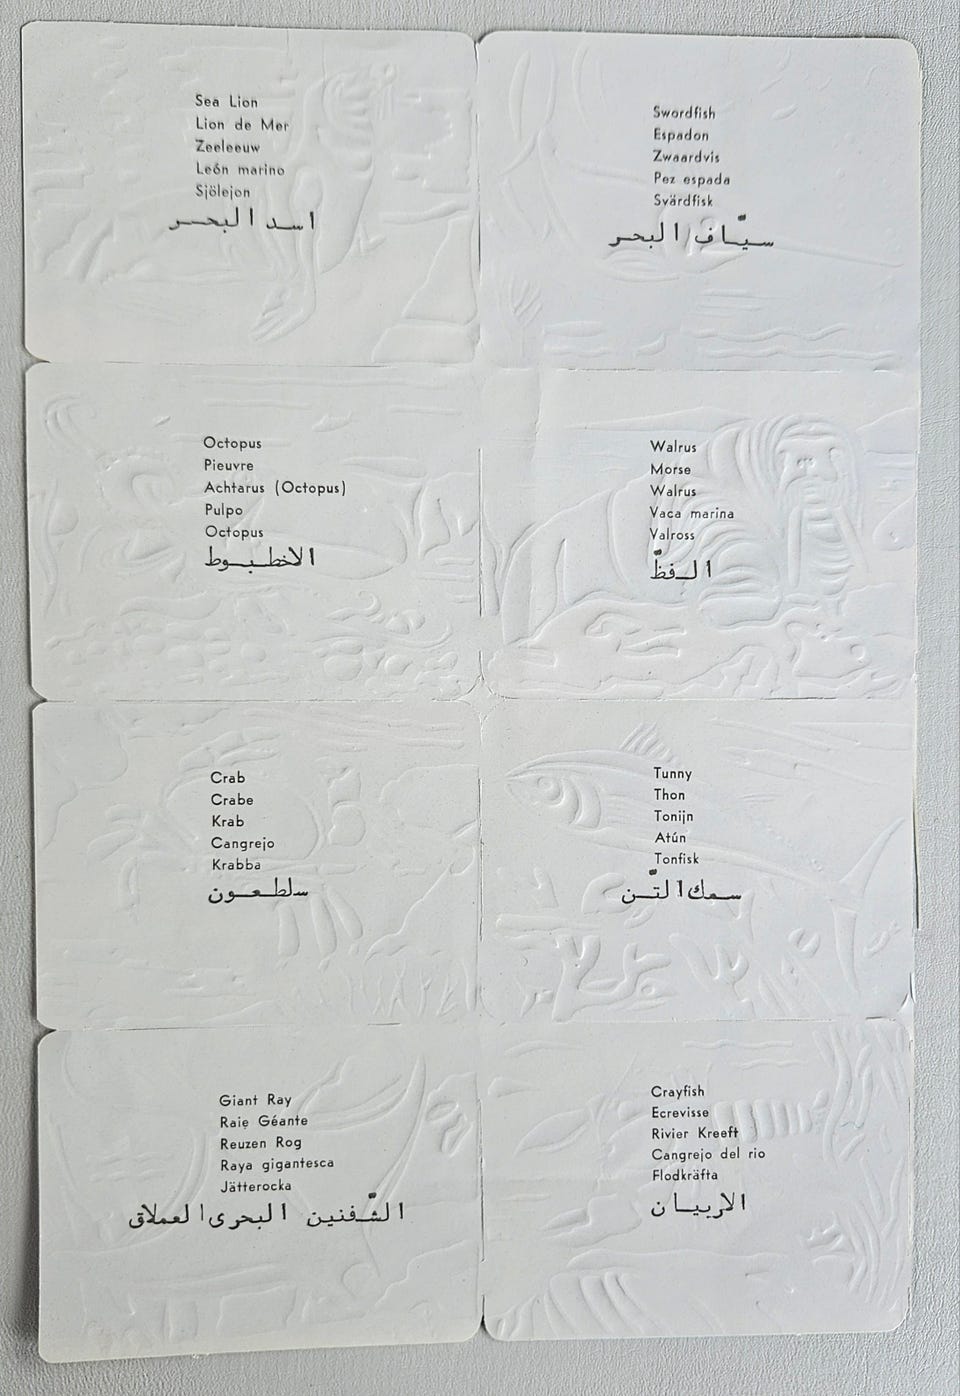 Sea Lion
Lion de Mer
Zeeleeuw
León marino
Sjölejon
اسد البحر
Swordfish
Espadon
Zwaardvis
Pez espada
Svärdfisk
سيّاف البحر
Octopus
Pieuvre
Achtarus (Octopus)
Pulpo
Octopus
الاخطبوط
Walrus
Morse
Walrus
Vaca marina
Valross
الفظّ
Crab
Crabe
Krab
Cangrejo
Krabba
سلطعون
Tunny
Thon
Tonijn
Atún
Tonfisk
سمك التّن
Giant Ray
Raie Géante
Reuzen Rog
Raya gigantesca
Jätterocka
الشّفنين البحرى العملاق
Crayfish
Ecrevisse
Rivier Kreeft
Cangrejo del rio
Flodkräfta
الاربيان